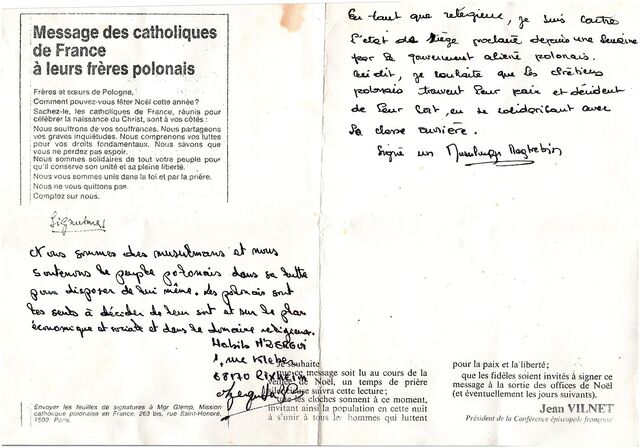 Message des catholiques
de France
à leurs frères polonais
Frères et sœurs de Pologne,
Comment pouvez-vous fêter Noël cette année?
Sachez-le, les catholiques de France, réunis pour
célébrer la naissance du Christ, sont à vos côtés:
Nous souffrons de vos souffrances. Nous partageons
vos graves inquiétudes. Nous comprenons vos luttes
pour vos droits fondamentaux. Nous savons que
vous ne perdez pas espoir.
Nous sommes solidaires de tout votre peuple pour
qu'il conserve son unité et sa pleine liberté.
Nous vous sommes unis dans la foi et par la prière.
Nous ne vous quittons pas.
Comptez sur nous.
Signatures
Nous sommes des musulmans et nous
soutenons le peuple polonais dans sa lutte
pour disposer de lui même. Les polonais sont
les seuls à décider de leur sort et sur le plan
économique et sociale et dans le domaine religieux.
Habib
1, rue Kléber
68170 Rixheim
Envoyer les feuilles de signatures à Mgr Glemp, Mission
catholique polonaise en France, 263 bis, rue Saint-Honoré,
Paris.
En tant que religieux, je suis contre
l'état de siège proclamé depuis une semaine
par le gouvernement aliéné polonais.
Ceci dit, je souhaite que les chrétiens
polonais trouvent leur paix et décident
de leur sort, en se solidarisant avec
la classe ouvrière.
Signé un Musulman Maghrebin
Je souhaite
que ce message soit lu au cours de la
veillée de Noël, un temps de prière
silencieuse suivra cette lecture;
que les cloches sonnent à ce moment,
invitant ainsi la population en cette nuit
à s'unir à tous les hommes qui luttent
pour la paix et la liberté;
que les fidèles soient invités à signer ce
message à la sortie des offices de Noël
(et éventuellement les jours suivants).
Jean VILNET
Président de la Conférence épiscopale française